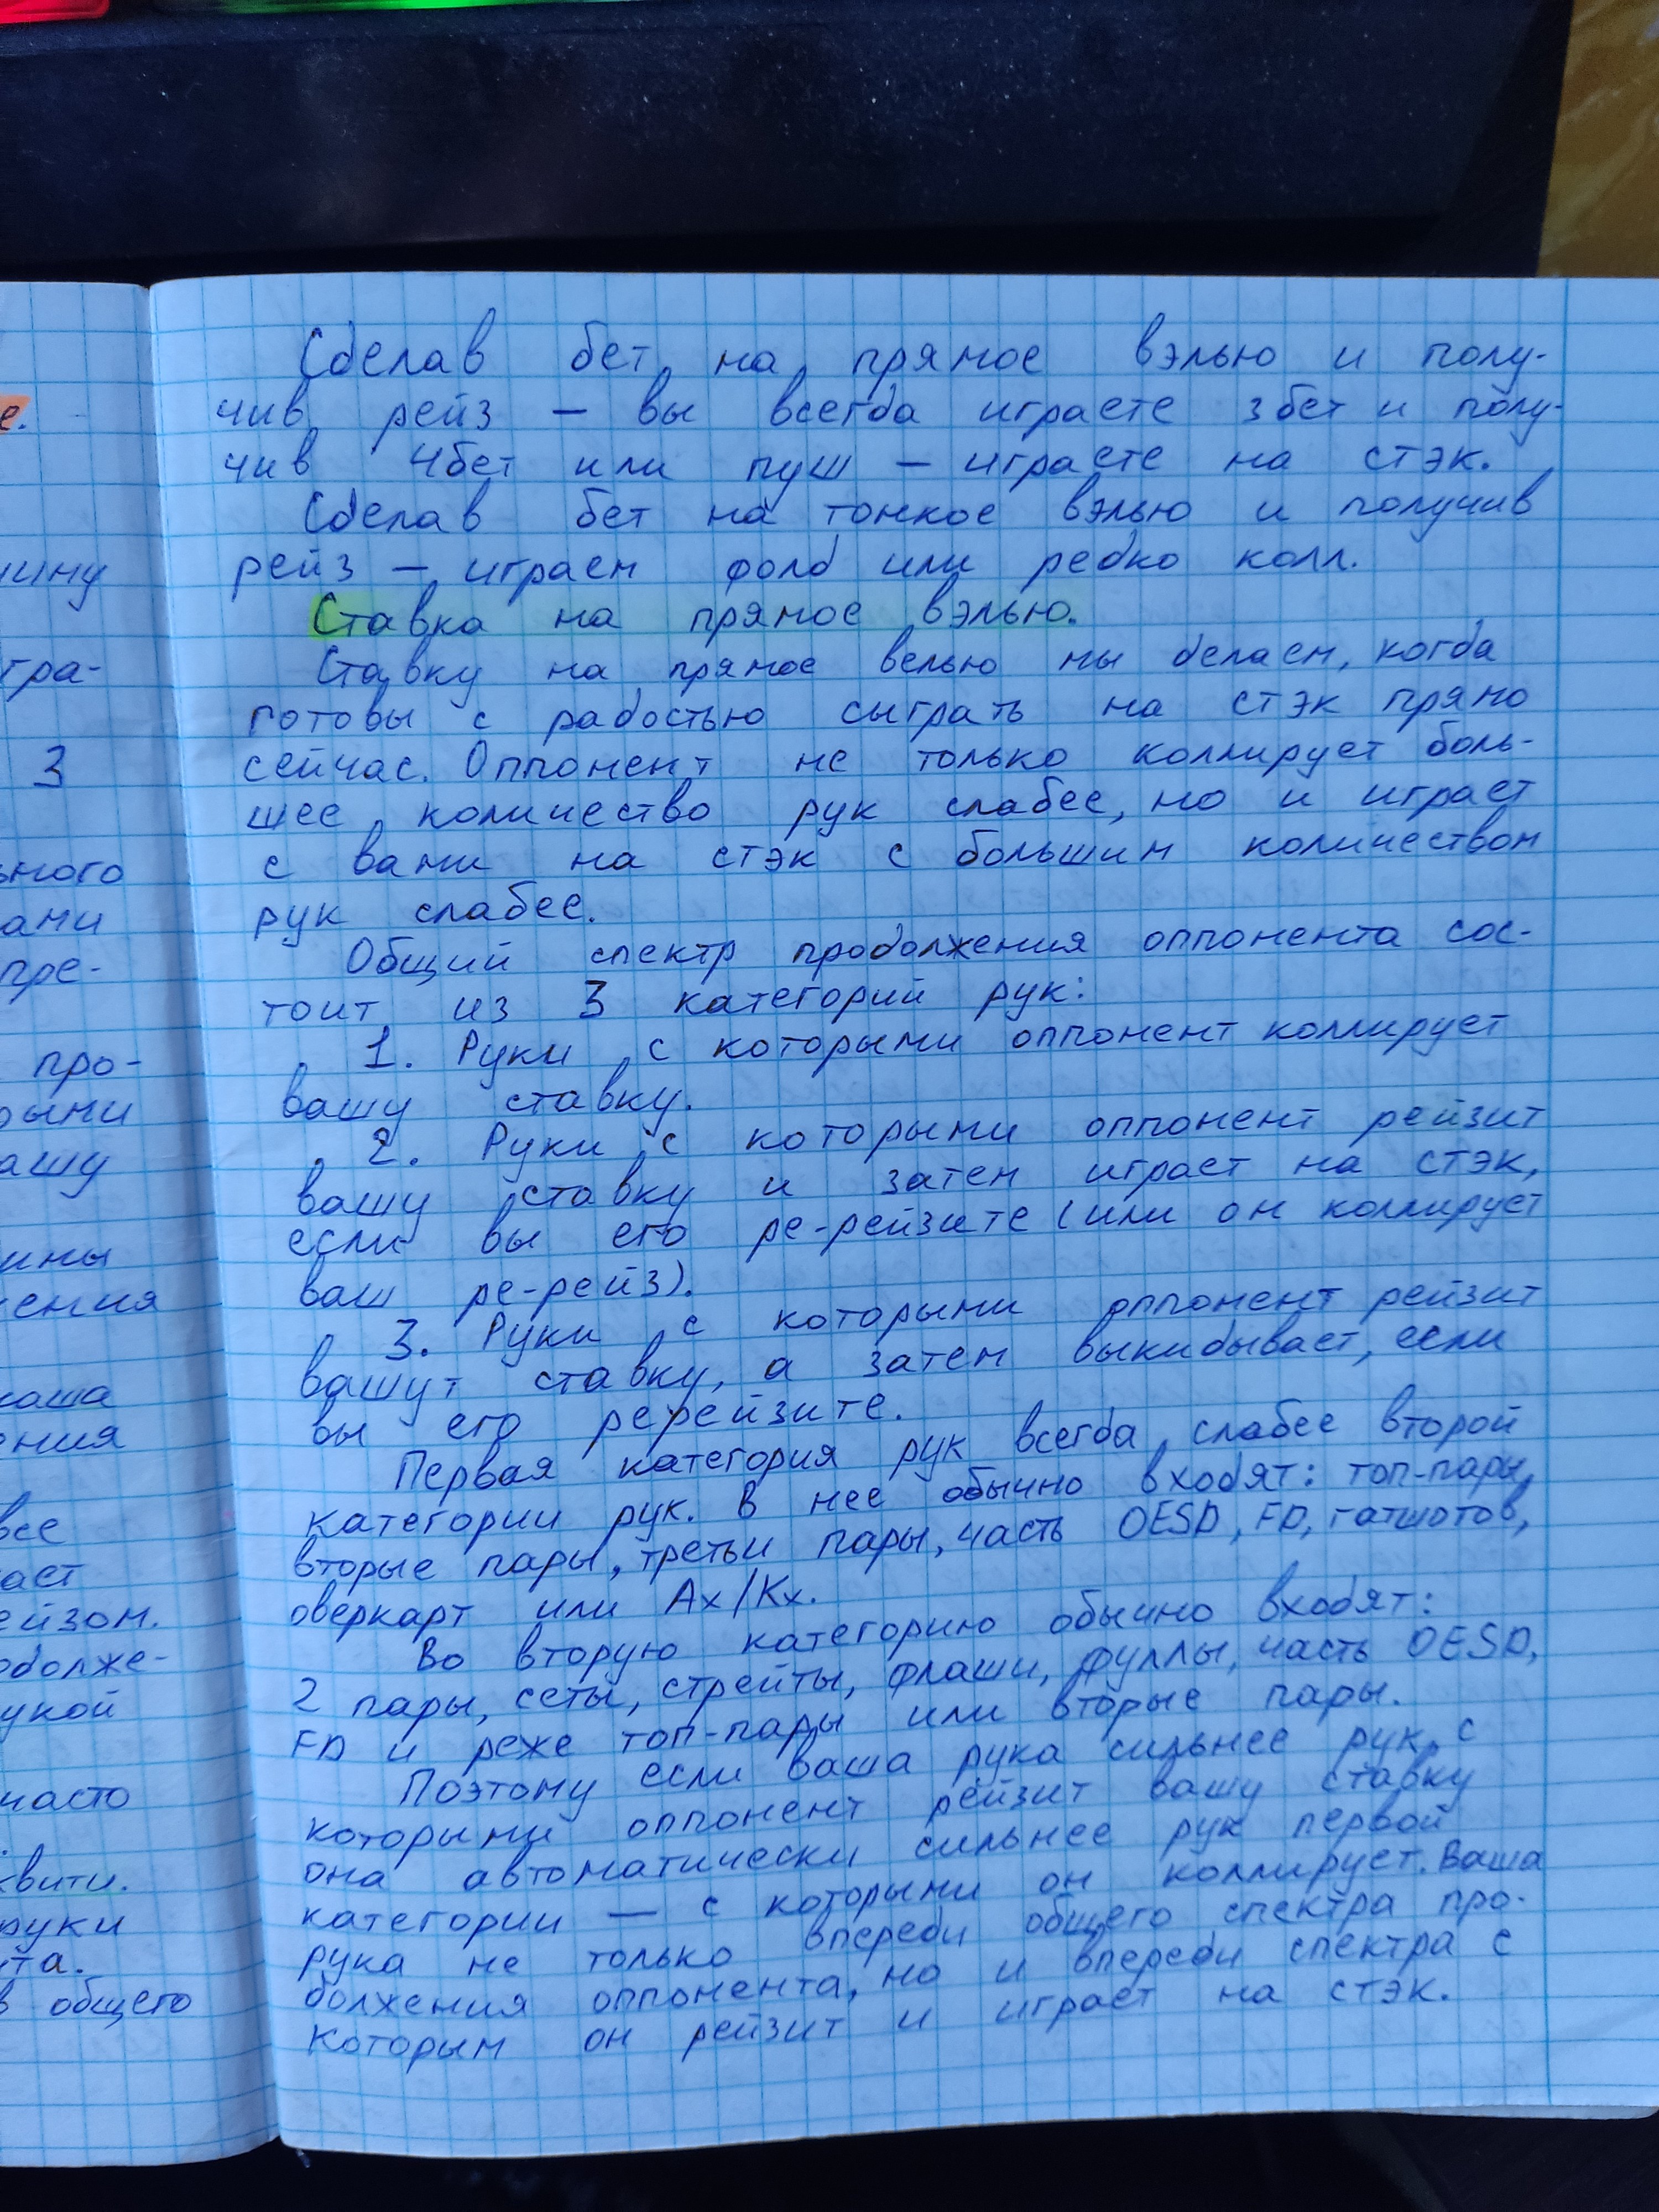 Сделав бет на прямое вэлью и полу-
чив рейз — вы всегда играете 3бет и полу-
чив 4бет или пуш — играете на стэк.
Сделав бет на тонкое вэлью и получив
рейз — играем фолд или редко колл.
Ставка на прямое вэлью.
Ставку на прямое велью мы делаем, когда
готовы с радостью сыграть на стэк прямо
сейчас. Оппонент не только коллирует боль-
шее количество рук слабее, но и играет
с вами на стэк с большим количеством
рук слабее.
Общий спектр продолжения оппонента сос-
тоит из 3 категорий рук:
1. Руки с которыми оппонент коллирует
вашу ставку.
2. Руки с которыми оппонент рейзит
вашу ставку и затем играет на стэк,
если вы его ре-рейзите (или он коллирует
ваш ре-рейз).
3. Руки с которыми оппонент рейзит
вашут ставку, а затем выкидывает, если
вы его ререйзите.
Первая категория рук всегда слабее второй
категории рук. В нее обычно входят: топ-пары,
вторые пары, третьи пары, часть OESD, FD, гатшотов,
оверкарт или Ax/Kx.
Во вторую категорию обычно входят:
2 пары, сеты, стрейты, флаши, фуллы, часть OESD,
FD и реже топ-пары или вторые пары.
Поэтому если ваша рука сильнее рук, с
которыми оппонент рейзит вашу ставку
она автоматически сильнее рук первой
категории — с которыми он коллирует. Ваша
рука не только впереди общего спектра про-
должения оппонента, но и впереди спектра с
которым он рейзит и играет на стэк.